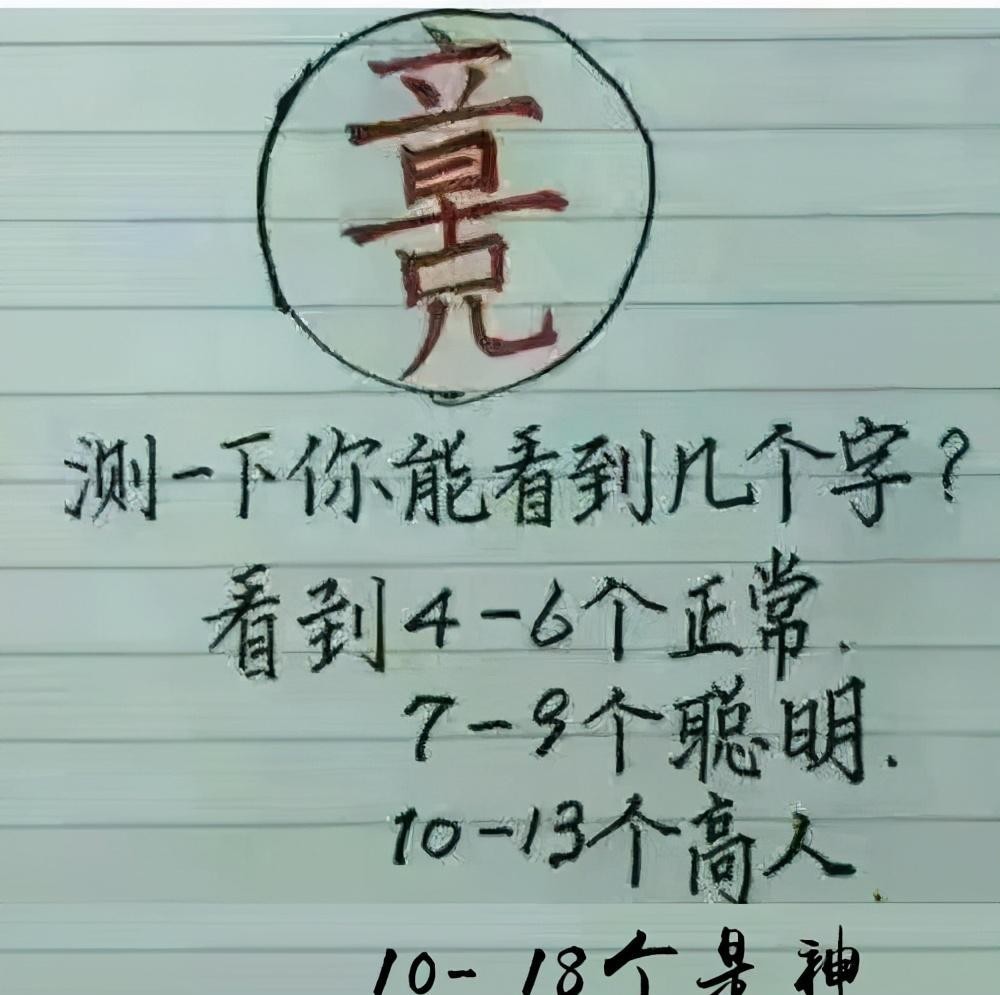 测一下你能看到几个字?
看到4-6个正常.
7-9个聪明.
10-13个高人
10- 18个是神